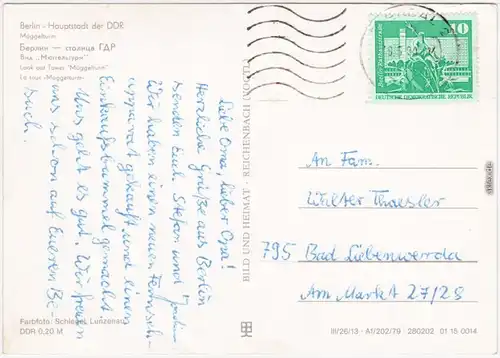 Berlin - Hauptstadt der DDR
Müggelturm
Берлин — столица ГДР
Вид „Мюггельтурм“
Look out Tower "Müggelturm"
La tour «Müggelturm»
Liebe Oma, lieber Opa!
Herzliche Grüße aus Berlin
senden Euch Stefan und
Wir haben einen neuen Fernseh-
apparat gekauft und einen
Einkaufsbummel gemacht.
Uns geht es gut. Wir freuen
uns schon auf Eueren Be-
such.
Farbfoto: Schlegel, Lunzenau
DDR 0,20 M
BILD UND HEIMAT · REICHENBACH (VOGTL)
10
DEUTSCHE DEMOKRATISCHE REPUBLIK
An Fam.
Walter Thaesler
795 Bad Liebenwerda
Am Markt 27/28
III/26/13 · A1/202/79 280202 01 15 0014